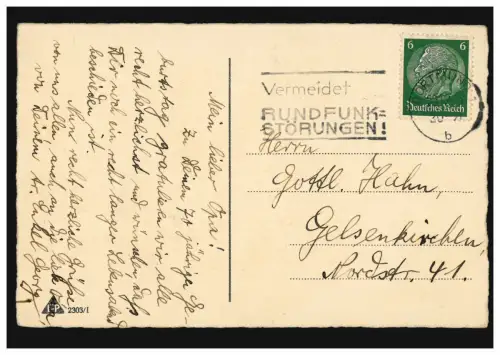 Mein lieber Opa!
Zu Deinem 70 jährige Ge-
burtstag gratulieren wir alle
recht herzlichst und wünschen daß
Dir noch ein recht langer Lebensabend
beschieden ist.
Nun recht herzliche Grüße
von uns allen auch an die
von Deinem Enkel Georg
2303/1
Vermeidet
RUNDFUNK=
STÖRUNGEN!
6 6
Deutsches Reich
b
Herrn
Gottl. Hahn,
Gelsenkirchen,
Nordstr. 41.